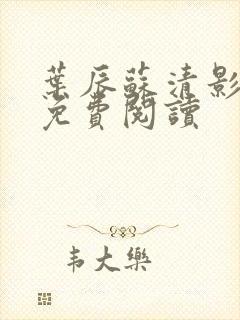 葉辰蘇清影
免費閱讀
韦大樂